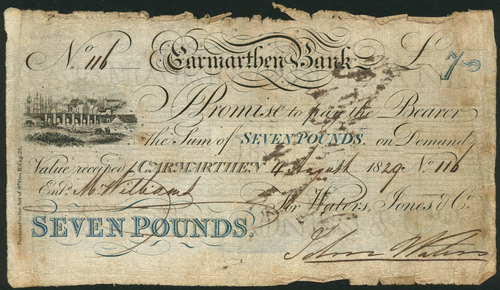 No 116 Carmarthen Bank £7
I Promise to pay the Bearer
the Sum of SEVEN POUNDS. on Demand
Value received CARMARTHEN 4 August 1829 No 116
Entd. McWilliams For Waters, Jones & Co.
SEVEN POUNDS. John Waters